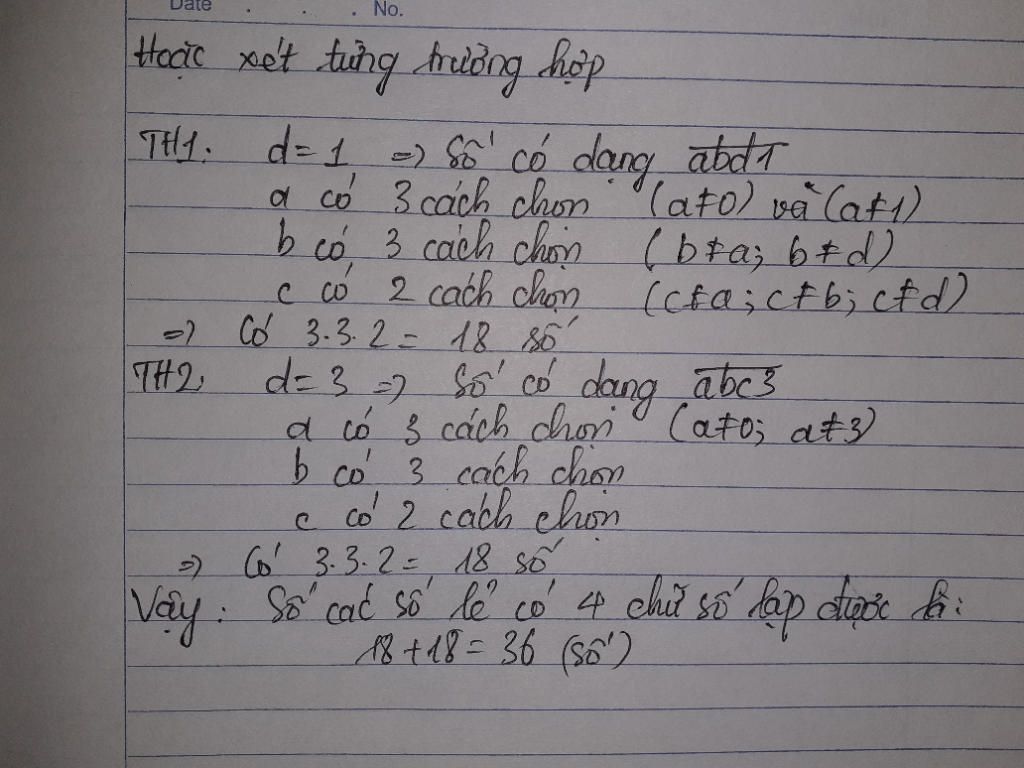 Date . . . No.
Hoặc xét từng trường hợp
TH1: d = 1 => Số có dạng abd1
a có 3 cách chọn (a≠0) và (a≠1)
b có 3 cách chọn (b≠a; b≠d)
c có 2 cách chọn (c≠a; c≠b; c≠d)
=> Có 3.3.2 = 18 số
TH2: d = 3 => Số có dạng abc3
a có 3 cách chọn (a≠0; a≠3)
b có 3 cách chọn
c có 2 cách chọn
=> Có 3.3.2 = 18 số
Vậy: Số các số lẻ có 4 chữ số lập được là:
18 + 18 = 36 (số)